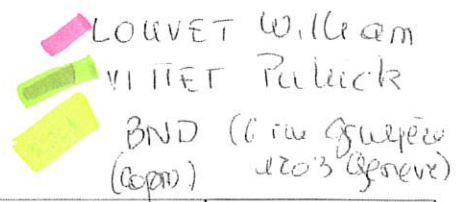 LOUVET William
VITTET Patrick
BND (6 rue Gruyère
(Copro) 1203 Genève)